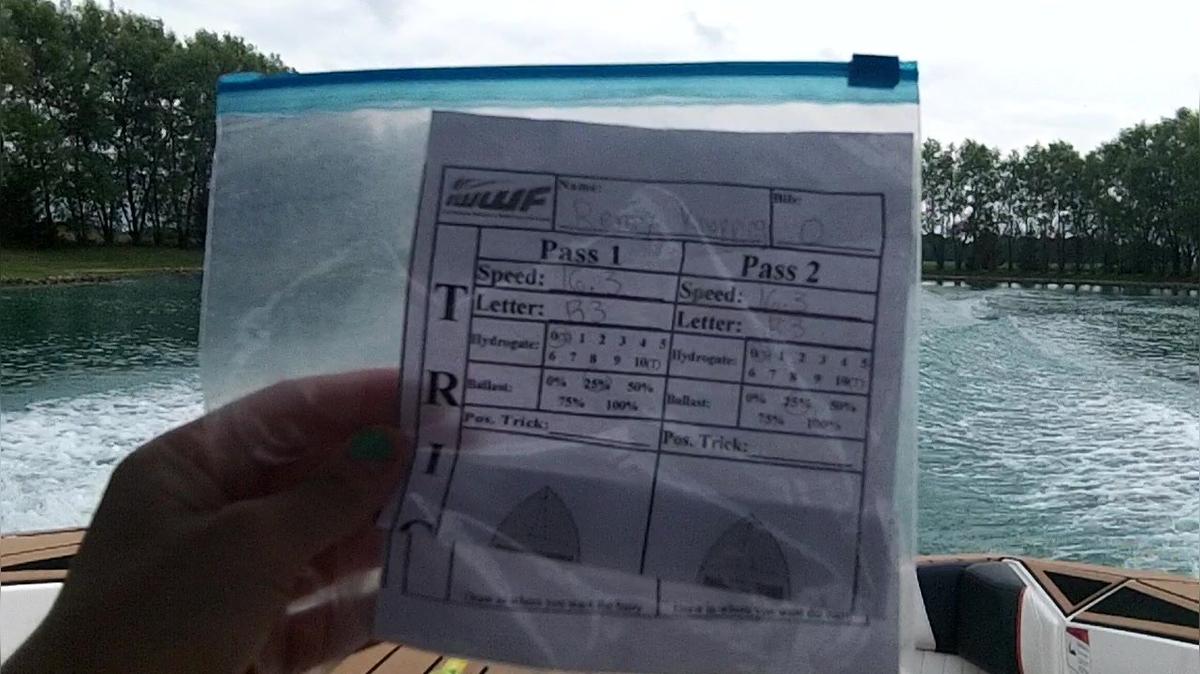 IWWF
Name:
Bib: 0
Pass 1 Pass 2
Speed: 16.3 Speed: 16.3
Letter: B3 Letter: B3
Hydrogate: 0(S) 1 2 3 4 5 Hydrogate: 0(S) 1 2 3 4 5
6 7 8 9 10(T) 6 7 8 9 10(T)
Ballast: 0% 25% 50% Ballast: 0% 25% 50%
75% 100% 75% 100%
Pos. Trick: Pos. Trick:
T
R
I
Draw in where you want the Draw in where you want the